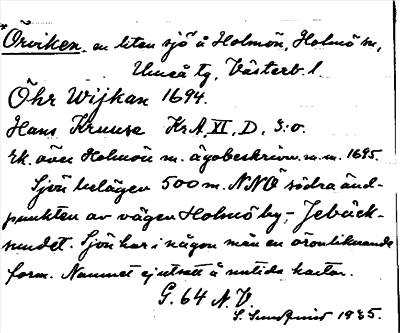 *Örviken, en liten sjö å Holmön, Holmö sn,
Umeå tg, Västerb. l.
Öhr Wijkan 1694.
Hans Kruuse KrA, XI, D, 3:o.
Ek. över Holmön m. ägobeskrivn. m.m. 1695.
Sjön belägen 500 m. NNÖ södra änd-
punkten av vägen Holmö by - Jebäck-
sundet. Sjön har i någon mån en öronliknande
form. Namnet ej utsatt å nutida kartor.
G. 64 N. V.
S. Sundquist 1935.